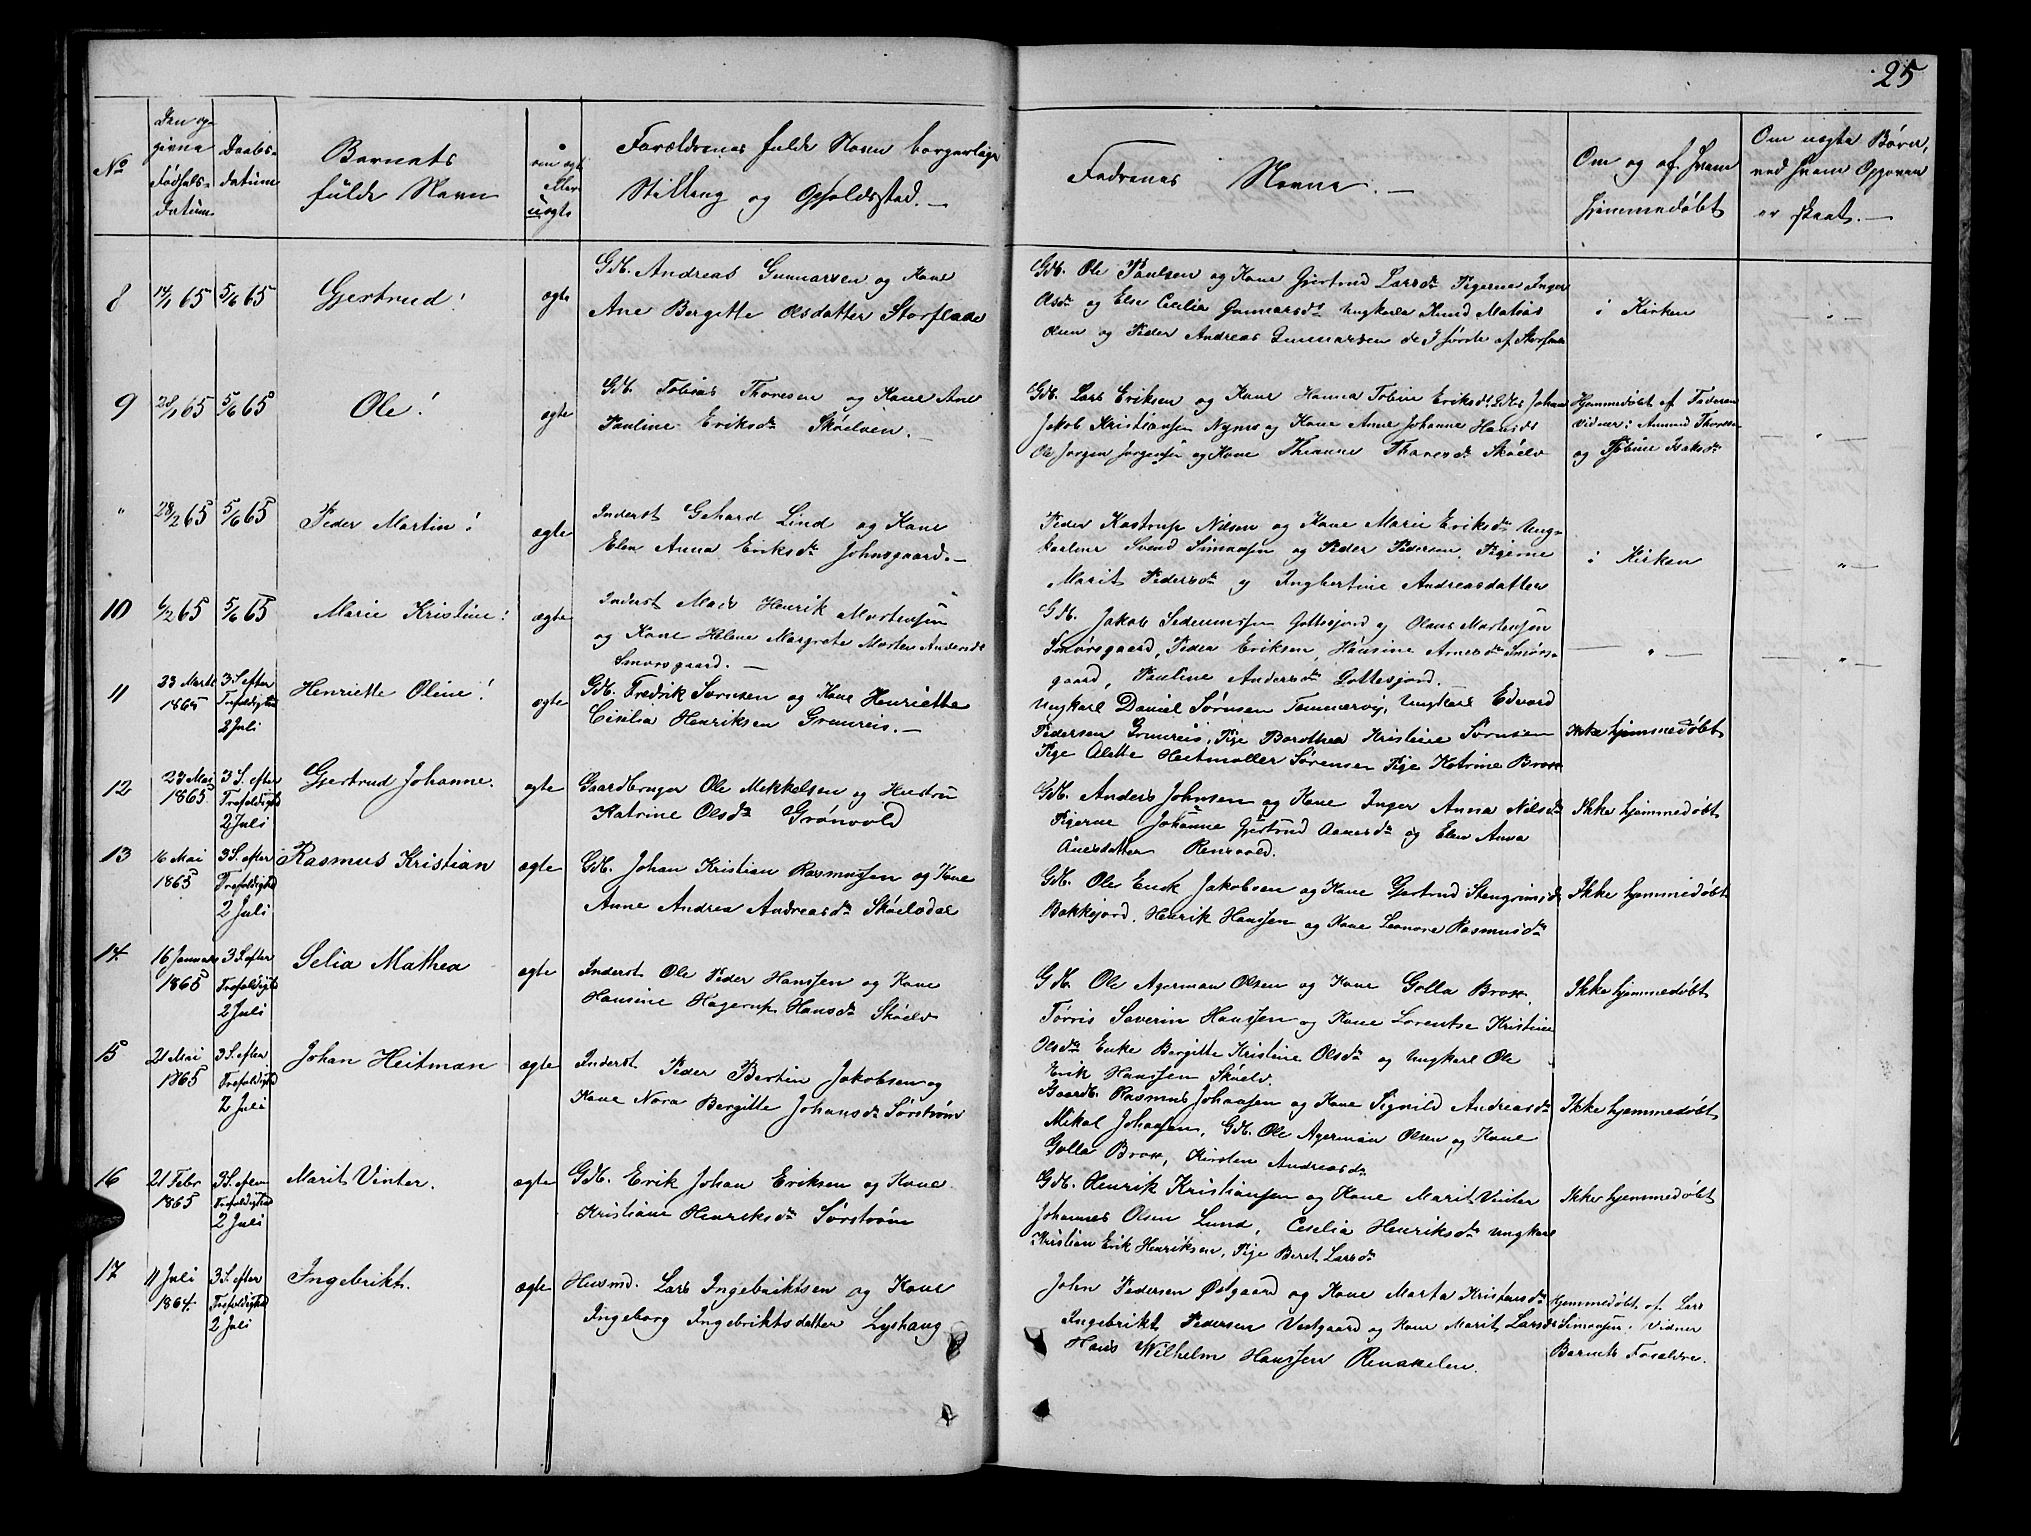 25
No
Den op-
givne
Fødsels-
datum.
Daabs-
datum
Barnets
fulde Navn
om ægte
eller
uægte
Forældrenes fulde Navn borgerlige
Stilling og Opholdssted. —
Faddrenes Navne. —
Om og af hvem
hjemmedøbt
Om uægte Børn,
ved hvem Opgaven
er skeet. —
8 14/1 65 5/6 65 Gjertrud! ægte
Gdb. Andreas Gunnarsen og Kone
Ane Bergitte Olsdatter Storflade
Gdb. Ole Paulsen og Kone Gjertrud Larsdr Pigerne Inger
Olsdr og Else Cecilia Gunnarsdr Ungkarle Knud Matias
Olsen og Peder Andreas Gunnarsen de 3 første af
i Kirken
9 28/1 65 5/6 65 Ole! ægte
Gdb. Tobias Thoresen og Kone Ane
Pauline Eriksdr Skøelven. —
Gdb. Lars Eriksen og Kone Hanna Tobine Eriksdr Johan
Jakob Kristiansen og Kone Anne Johanne Hansdr
Ole Jørgen Jørgensen og Kone Thoresdr Skøelv
Hjemmedøbt af Faderen
Vidner: Amund Thoresen
og Isaksdr
" 28/2 65 5/6 65 Peder Martin! ægte
Inderst Gehard Lind og Kone
Elen Anna Eriksdr Johnsgaard. —
Peder Kastrup Nilsen og Kone Marie Eriksdr Ung-
karlene Svend Simonsen og Peder Pedersen, Pigerne
Marit Pedersdr og Ingbertine Andreasdatter
i Kirken
10 6/2 65 5/6 65 Marie Kristine! ægte
Inderst Mads Henrik Mortensen
og Kone Helene Margrete Morten Andersdr
Smørsgaard. —
Gdb. Jakob Gottesjord og Olaus Mortensen
Smørsgaard, Peder Eriksen, Hansine Arnesdr Smørs-
gaard, Pauline Andersdr Gottesjord. —
11 23 Marts 3 S. efter Henriette Oline! ægte
1865 Trefoldighed
2 Juli
Gdb. Fredrik Sørensen og Kone Henriette
Cisilia Henriksen Grunreis. —
Ungkarl Daniel Sørnsen Tømmervig, Ungkarl Edvard
Pedersen Grunreis, Pige Borothea Kristine Sørnsen
Pige Alette Heitmøller Sørensen Pige Katrine Brox
Ikke hjemmedøbt
12 23 Mai 3 S. efter Gjertrud Johanne. ægte
1865 Trefoldighd
2 Juli
Gaardbruger Ole Mikkelsen og Hustru
Katrine Olsdr Grønvold
Gdb. Anders Johnsen og Kone Inger Anna Nilsdr
Pigerne Johanne Gjertrud Aanesdr og Elen Anna
Aanesdatter Rensvold.
Ikke hjemmedøbt
13 16 Mai 3 S. efter Rasmus Kristian ægte
1865 Trefoldighed
2 Juli
Gdb. Johan Kristian Rasmussen og Kone
Anne Andrea Andreasdr Skøelvdal
Gdb. Ole Enok Jakobsen og Kone Gjertrud Stengrimsdr
Bakkejord, Henrik Hanssen og Kone Leonore Rasmusdr
Ikke hjemmedøbt
14. 16 Januar 3 S. efter Selia Mathea ægte
1865 Trefoldighd
2 Juli
Inderst Ole Peder Hanssen og Kone
Hansine Hagerup Hansdr Skøelv
Gdb. Ole Agerman Olsen og Kone Golla Brox,
Tørris Severin Hanssen og Kone Lorentse Kristine
Olsdr Enke Bergitte Kristine Olsdr og Ungkarl Ole
Erik Hanssen Skøelv.
Ikke hjemmedøbt
15 21 Mai 3 S. efter Johan Heitman ægte
1865 Trefoldighd
2 Juli
Inderst Peder Bertin Jakobsen og
Kone Nora Bergitte Johansdr Sørstrøm
Gaardb. Rasmus Johansen og Kone Signild Andreasdr
Mikal Johansen, Gdb. Ole Agerman Olsen og Kone
Golla Brox, Kirsten Andreasdr
Ikke hjemmedøbt
16 21 Febr 3 S. efter Marit Vinter. ægte
1865 Trefoldighed
2 Juli
Gdb. Erik Johan Eriksen og Kone
Kristiane Henriksdr Sørstrøm
Gdb. Henrik Kristiansen og Kone Marit Vinter
Johannes Olsen Lund, Cecelia Henriksdr Ungkarl
Kristian Erik Henriksen, Pige Beret Larsdr
Ikke hjemmedøbt
17 11 Juli 3 S. efter Ingebrikt. ægte
1864. Trefoldighed
2 Juli
Husmd. Lars Ingebriktsen og Kone
Ingeborg Ingebriktsdatter Lyshaug
John Pedersen Østgaard og Kone Marta Kristensdr
Ingebrikt Pedersen Vestgaard og Kone Marit Larsdr
Hans Wilhelm Hanssen Renskelen.
Hjemmedøbt af Lars
Simonsen. Vidner
Barnets Forældre.